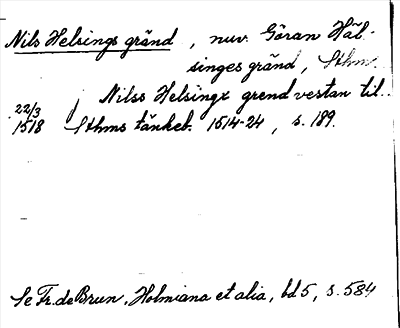 Nils Helsings gränd, nuv. Göran Häl-
singes gränd, Sthm.
Nilss Helsingx grend vestan til..
22/3
1518 Sthms tänkeb. 1514-24, s. 189.
Se Fr. de Brun, Holmiana et alia, bd 5, s. 584